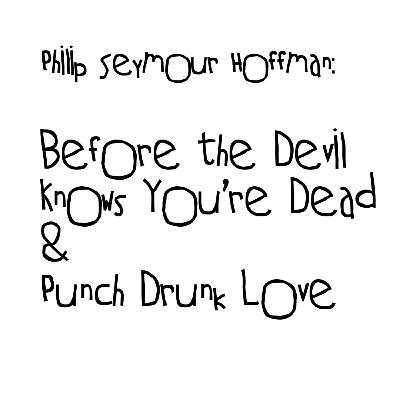 Philip Seymour Hoffman:
Before the Devil
Knows You're Dead
&
Punch Drunk Love